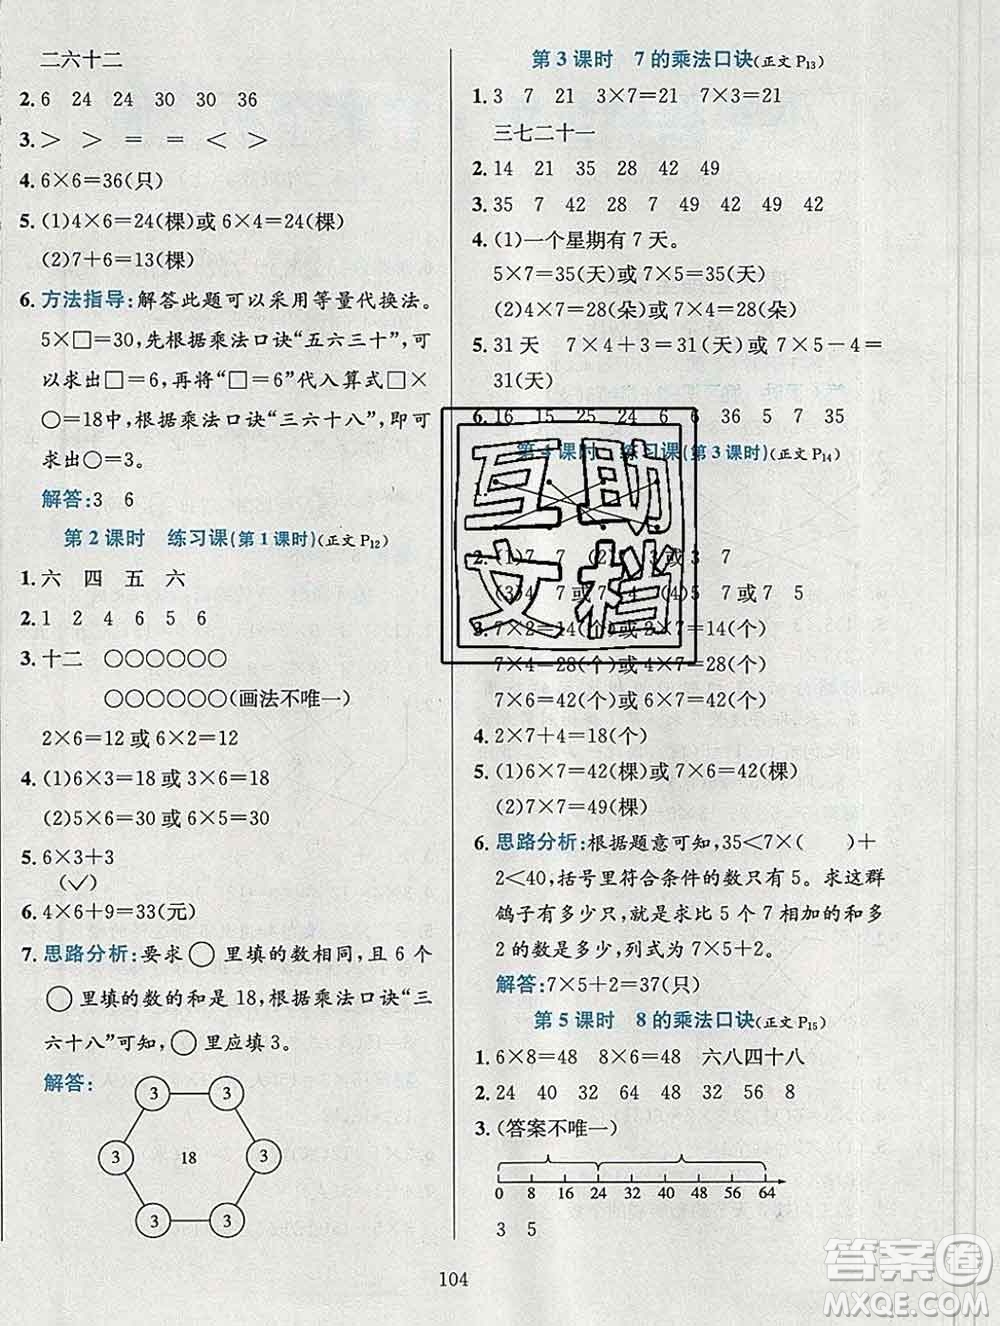 二六十二
2. 6 24 24 30 30 36
3. > > = = < >
4. 6×6=36(只)
5. (1)4×6=24(棵)或 6×4=24(棵)
(2)7+6=13(棵)
6. 方法指导:解答此题可以采用等量代换法。
5×□=30,先根据乘法口诀“五六三十”,可
以求出□=6,再将“□=6”代入算式□×
○=18中,根据乘法口诀“三六十八”,即可
求出○=3。
解答:3 6
第 2 课时 练习课(第 1 课时)(正文 P12)
1. 六 四 五 六
2. 1 2 4 6 5 6
3. 十二 ○○○○○○
○○○○○○(画法不唯一)
2×6=12 或 6×2=12
4. (1)6×3=18 或 3×6=18
(2)5×6=30 或 6×5=30
5. 6×3+3
(✓)
6. 4×6+9=33(元)
7. 思路分析:要求○里填的数相同,且 6 个
○里填的数的和是 18,根据乘法口诀“三
六十八”可知,○里应填 3。
解答:
3 3
3 18 3
3 3
第 3 课时 7 的乘法口诀(正文 P13)
1. 3 7 21 3×7=21 7×3=21
三七二十一
2. 14 21 35 42 49
3. 35 7 42 28 7 49 49 42
4. (1)一个星期有 7 天。
5×7=35(天)或 7×5=35(天)
(2)4×7=28(朵)或 7×4=28(朵)
5. 31 天 7×4+3=31(天)或 7×5-4=
31(天)
6. 16 15 25 24 6 6 36 5 7 35
第 4 课时 练习课(第 3 课时)(正文 P14)
互助
文档
2. (1)7 7 (2) 或 3 7
(3)4 7或7 4 (4)5 7或 7 5
3. 7×2=14(个)或 2×7=14(个)
7×4=28(个)或 4×7=28(个)
7×6=42(个)或 6×7=42(个)
4. 2×7+4=18(个)
5. (1)6×7=42(棵)或 7×6=42(棵)
(2)7×7=49(棵)
6. 思路分析:根据题意可知,35<7×( )+
2<40,括号里符合条件的数只有 5。求这群
鸽子有多少只,就是求比 5 个 7 相加的和多
2 的数是多少,列式为 7×5+2。
解答:7×5+2=37(只)
第 5 课时 8 的乘法口诀(正文 P15)
1. 6×8=48 8×6=48 六八四十八
2. 24 40 64 48 32 56 8
3. (答案不唯一)
0 8 16 24 32 40 48 56 64
3 5
104
答案圈
MXQE.COM